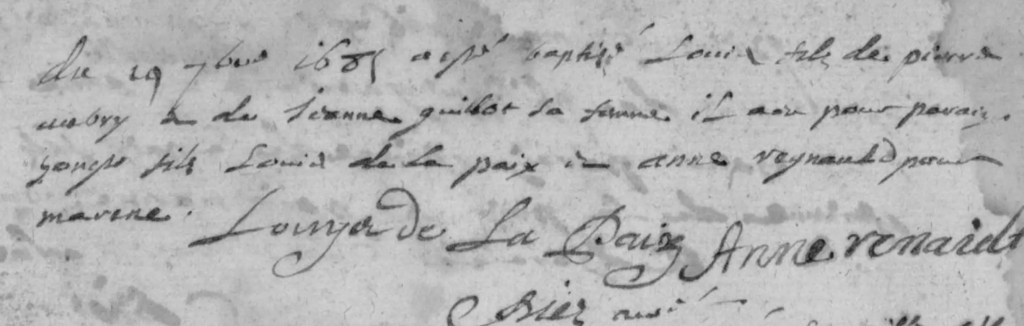 du 19 7bre 1685 a esté baptizé Louis fils de pierre
aubry & de Jeanne guillot sa femme il a eu pour parain
fils Louis de la paix & anne reynauld pour
marene.
Louys de La Paix Anne renauldt